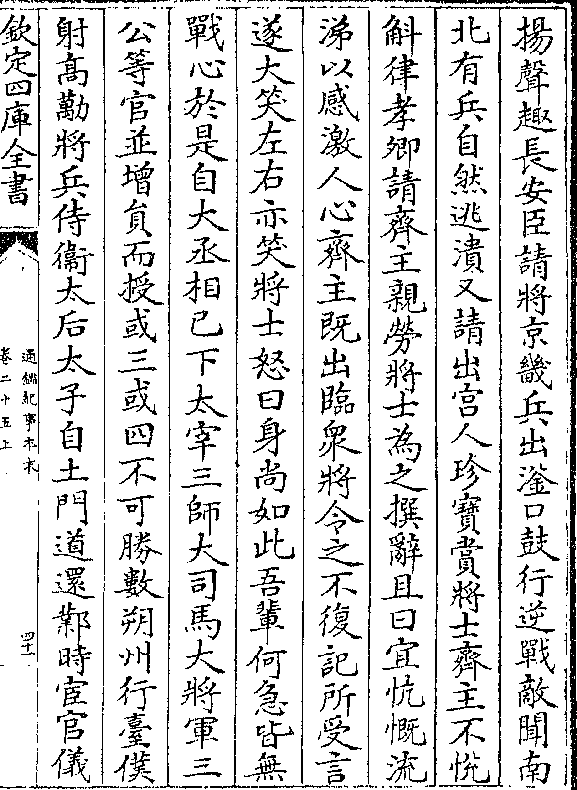 揚聲趣長安臣請將京畿兵出滏口鼓行逆戰敵聞南
北有兵自然逃潰又請出宫人珍寳賞將士齊主不悦
斛律孝卿請齊主親勞將士為之撰辭且曰宜忼慨流
涕以感激人心齊主既出臨衆將令之不復記所受言
遂大笑左右亦笑將士怒曰身尚如此吾輩何急皆無
戰心於是自大丞相已下太宰三師大司馬大將軍三
公等官並增員而授或三或四不可勝數朔州行臺僕
射髙勱將兵侍衞太后太子自土門道還鄴時宦官儀
欽定四庫全書
通鑑紀事本末
卷二十五上
四十一